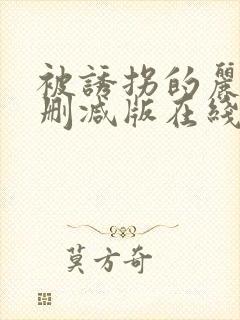 被誘拐的麗
刪減版在綫
莫方奇